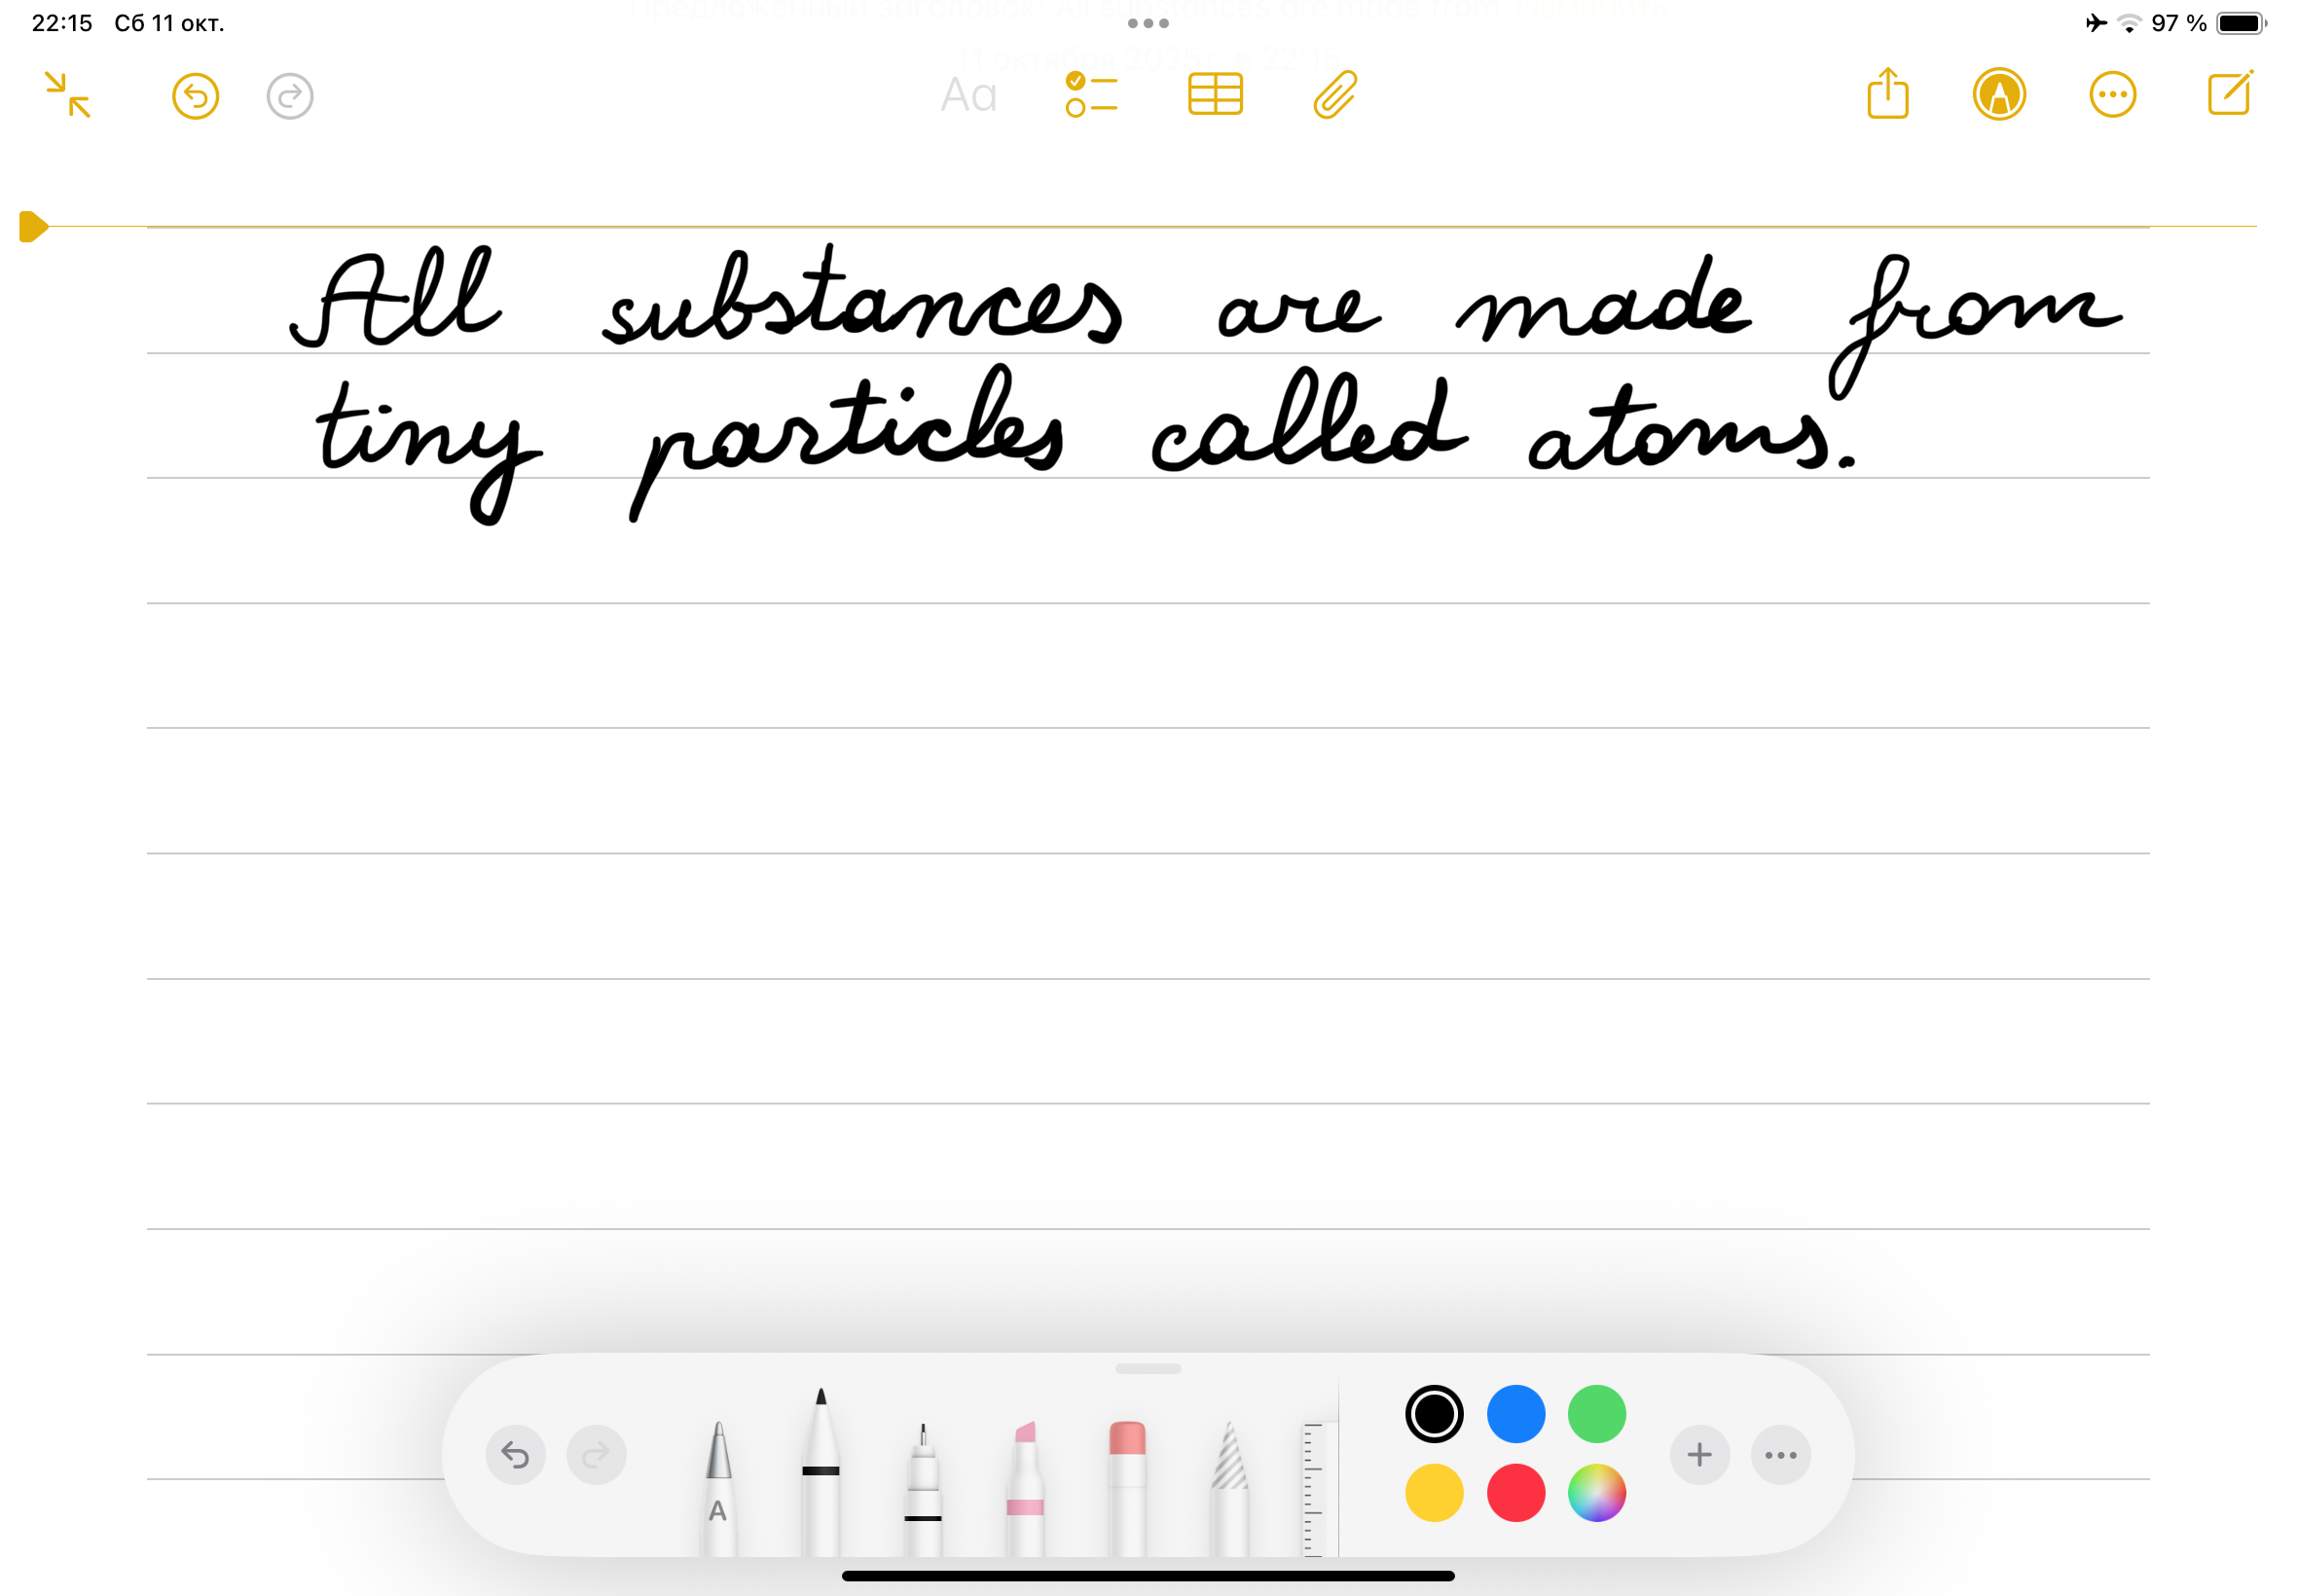 22:15 Сб 11 окт. 97 %
Aa
All substances are made from
tiny particles called atoms.
A